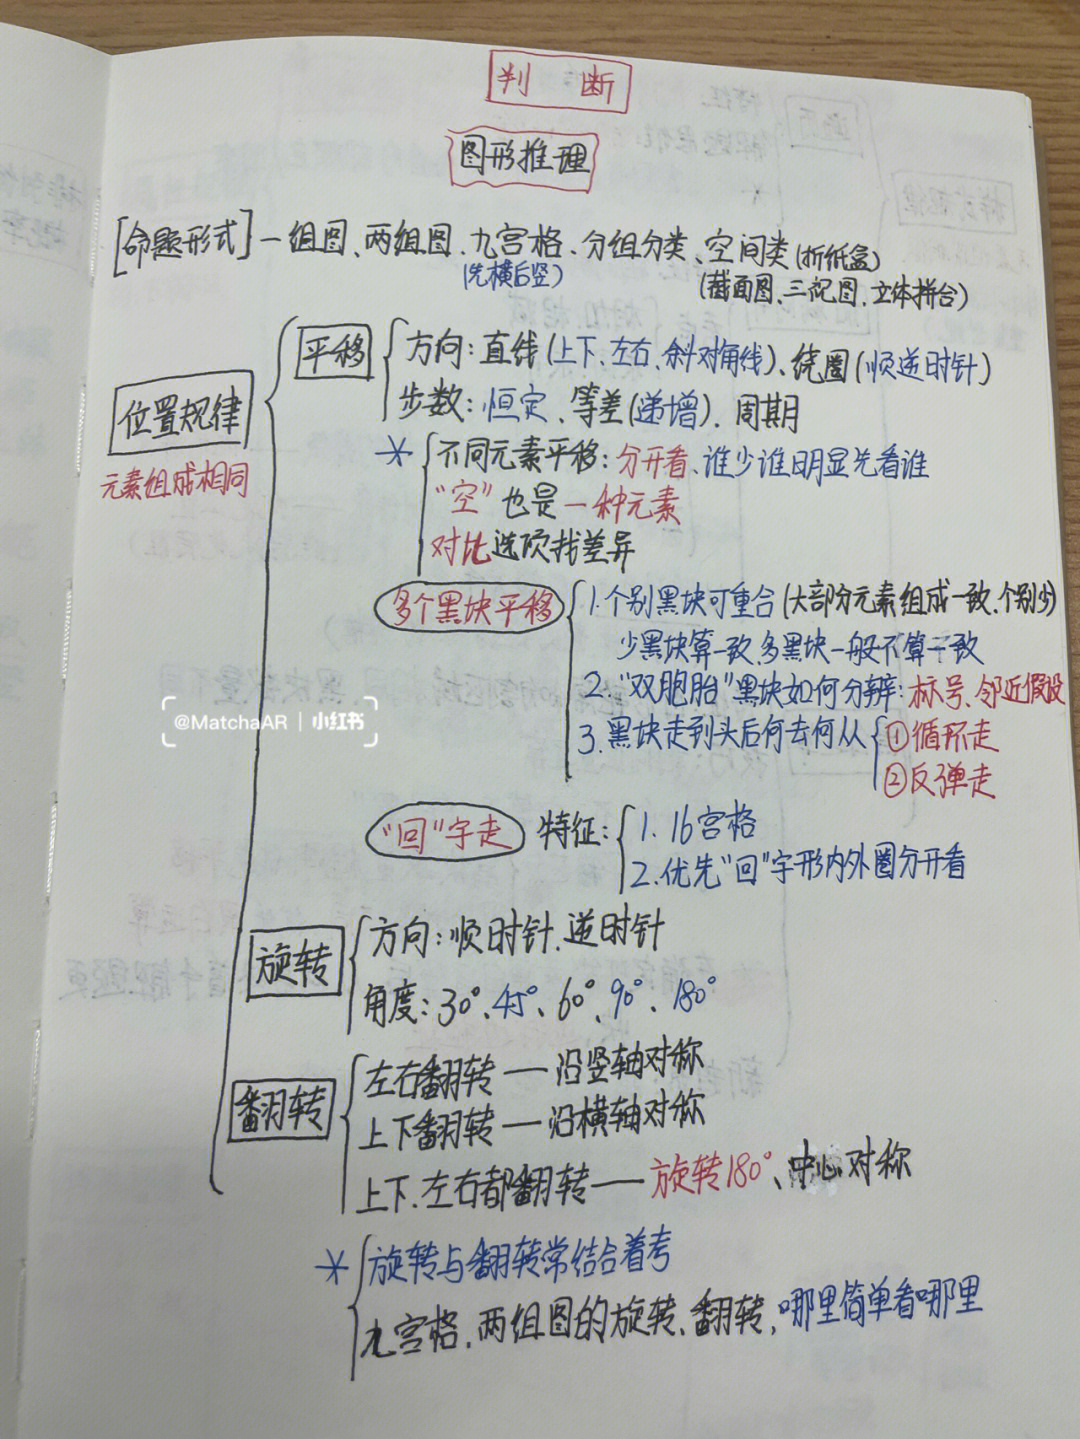 判 断
图形推理
[命题形式] 一组图、两组图、九宫格、分组分类、空间类(折纸盒)
(先横后竖) (截面图、三视图、立体拼合)
位置规律
元素组成相同
平移
方向:直线(上下、左右、斜对角线)、绕圈(顺逆时针)
步数:恒定、等差(递增)、周期
* 不同元素平移:分开看、谁少谁明显先看谁
“空”也是一种元素
对比选项找差异
多个黑块平移
1.个别黑块可重合(大部分元素组成一致、个别少)
少黑块算一致,多黑块一般不算一致
2.“双胞胎”黑块如何分辨:标号、邻近假设
@MatchaAR | 小红书
3.黑块走到头后何去何从 ①循环走
②反弹走
“回”字走 特征:
1.16宫格
2.优先“回”字形内外圈分开看
旋转
方向:顺时针、逆时针
角度:30°、45°、60°、90°、180°
翻转
左右翻转——沿竖轴对称
上下翻转——沿横轴对称
上下、左右都翻转——旋转180°、中心对称
* 旋转与翻转常结合着考
九宫格、两组图的旋转、翻转,哪里简单看哪里